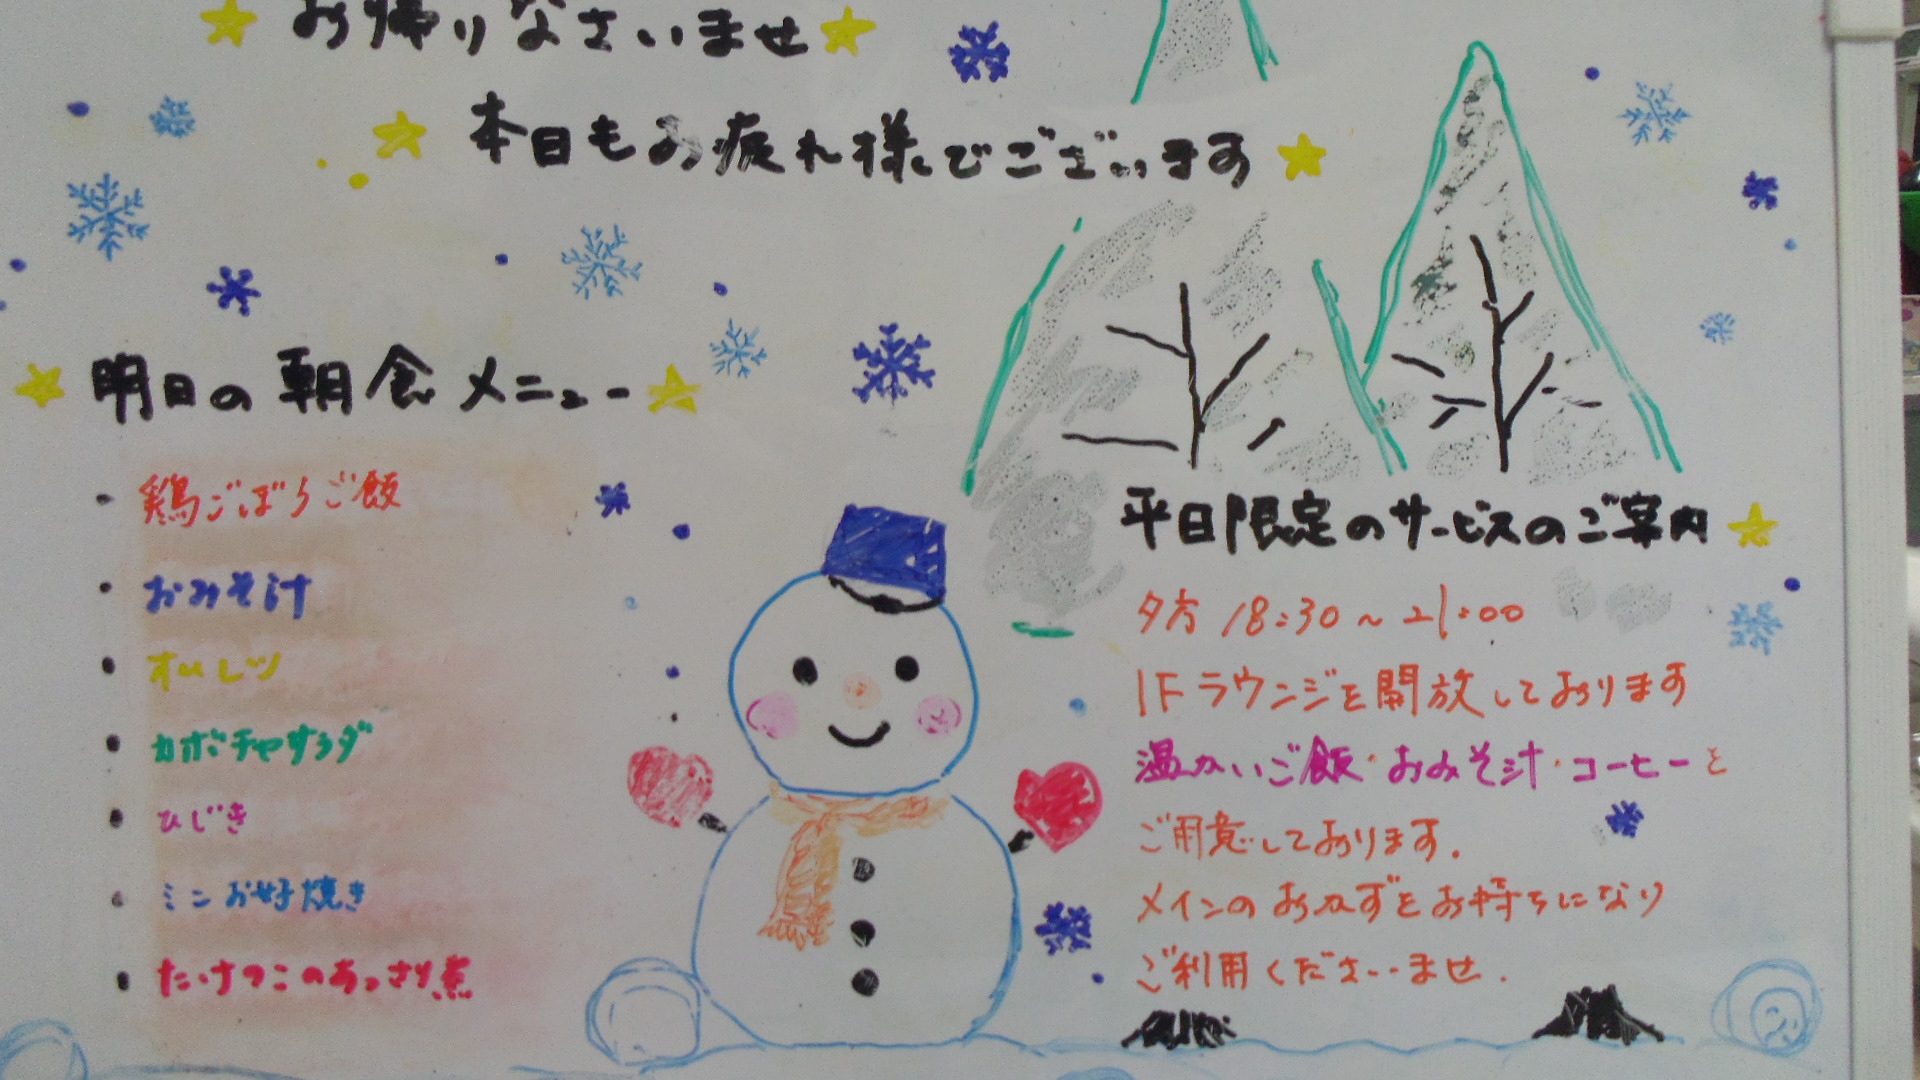 お帰りなさいませ
本日もお疲れ様でございます
明日の朝食メニュー
・鶏ごぼうご飯
・おみそ汁
・オムレツ
・カボチャサラダ
・ひじき
・ミニお好焼き
・たけのこのあっさり煮
平日限定のサービスのご案内
夕方 18:30~21:00
1Fラウンジを開放しております
温かいご飯・おみそ汁・コーヒーを
ご用意しております.
メインのおかずをお持ちになり
ご利用くださいませ.